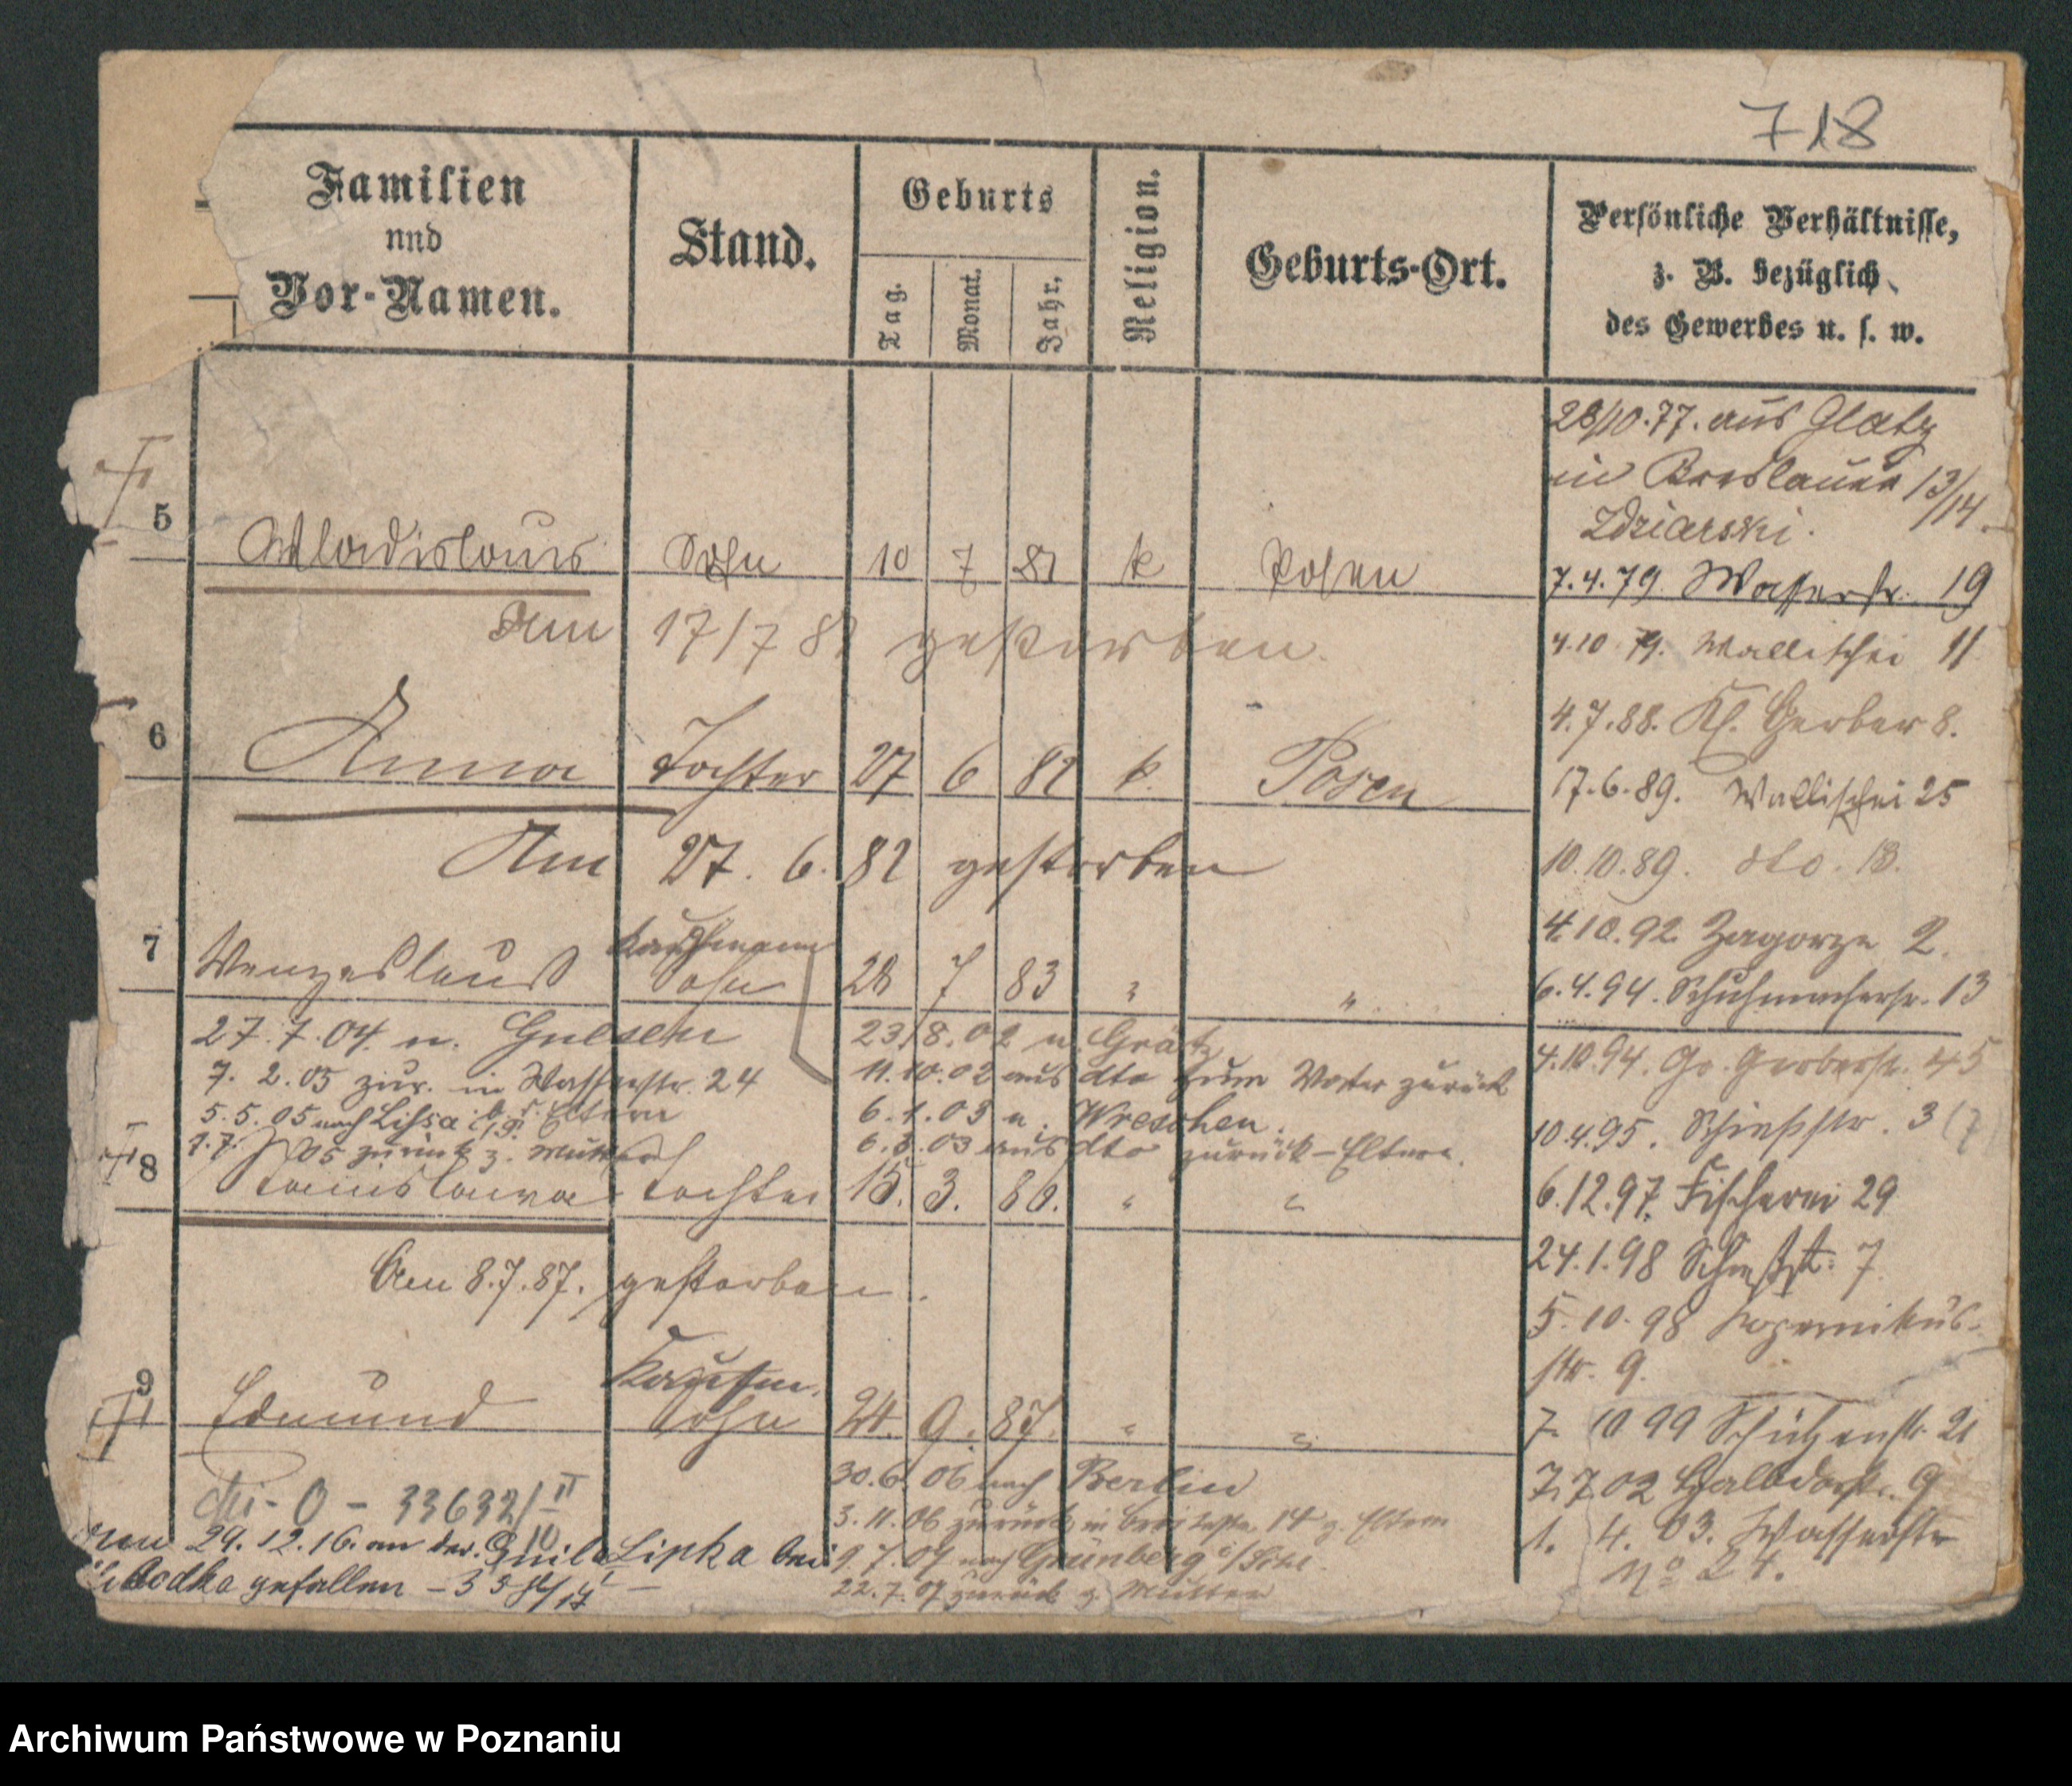 718
Familien
und
Vor-Namen.
Stand.
Geburts
Tag.
Monat.
Jahr.
Religion.
Geburts-Ort.
Persönliche Verhältnisse,
z. B. bezüglich
des Gewerbes u. s. w.
5
Wladislaus Sohn 10 7 81 k Posen
Am 17/7 81 gestorben.
6
Anna Tochter 27 6 82 k. Posen
Am 27. 6. 82 gestorben
7
Kaufmann
Wenzeslaus Sohn 28 7 83 " "
27.7.04. n. Gnesen
7. 2. 05 zur. in Wasserstr. 24
5.5.05 nach Lissa i/P. z. Eltern
05 zurück z. Mutter
23/8.02 n. Grätz
11.10.02 aus dto zum Vater zurück
6.1.03 n. Wreschen.
6.3.03 aus dto zurück – Eltern.
8
Stanislawa Tochter 15. 3. 86. " "
Am 8.7.87. gestorben.
9
Kaufm.
Edmund Sohn 24. 9. 87. " "
30.6.06 nach Berlin
3.11.06 zurück in 14 z. Eltern
9.7.07 nach Grünberg i/Schl.
22.7.07 zurück z. Mutter
- O - 33632/II
10
29.12.16. an der Lipka bei
gefallen
28/10.77. aus Glatz
in Breslauer 13/14
Zdziarski.
7.4.79. Wasserstr. 19
4.10.79. Wallischei 11
4.7.88. Kl. Gerber 8.
17.6.89. Wallischei 25
10.10.89. dto. 18.
4.10.92. Zagorze 2.
6.4.94. Schuhmacherstr. 13
4.10.94. Gr. Gerberstr. 45
10.4.95. Schießstr. 3
6.12.97. Fischerei 29
24.1.98 Schießstr. 7
5.10.98 Kopernikus-
str. 9.
7. 10 99 Schützenstr. 21
7.7.02 Halbdorfstr. 9
1. 4. 03. Wasserstr
No 24.
Archiwum Państwowe w Poznaniu